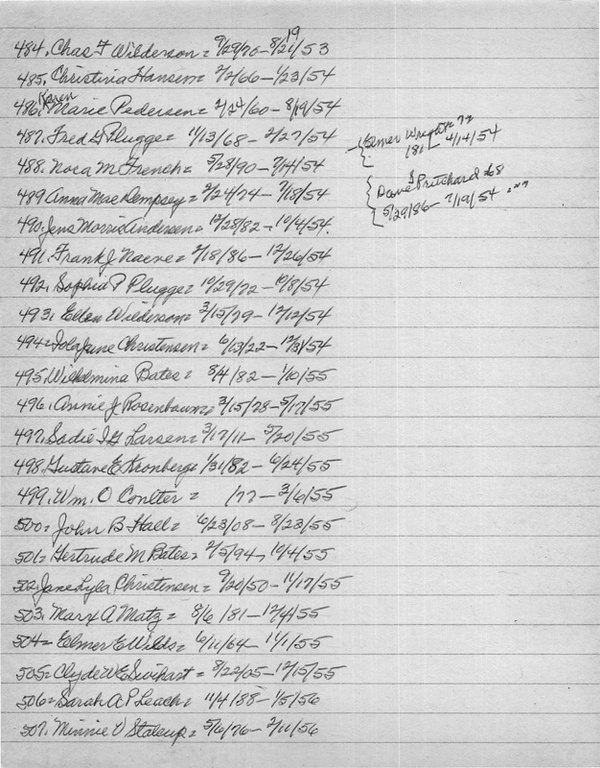 484. Chas F Wilderson = 9/29/70 - 8/21/53
19
485. Christina Hansen = 2/2/66 - 1/23/54
486. Karen Marie Pedersen = 2/24/60 - 8/19/54
487. Fred G Plugge = 11/13/68 - 2/27/54
{Elmer Wright 72
181 - 4/14/54
488. Nora M French = 5/28/90 - 7/14/54
489 Anna Mae Dempsey = 2/24/74 - 7/18/54
{Dave S Pritchard 68
5/29/86 - 7/19/54
490. Jens Morris Andersen = 12/28/82 - 10/4/54.
491. Frank J Naeve = 2/18/86 - 12/26/54
492. Sophia P Plugge = 10/29/72 - 10/8/54
493. Ellen Wilderson = 3/15/79 - 12/12/54
494 = Iola June Christensen = 6/13/22 - 12/31/54
495. Wilhelmina Bates = 8/4/82 - 1/10/55
496. Annie J Rosenbaum = 3/15/78 - 5/17/55
497. Sadie I G Larsen = 3/17/11 - 5/20/55
498. Gustave E Kronberg = 1/31/82 - 6/24/55
499. Wm. O Conlter = /77 - 3/6/55
500 = John B Hall = 6/23/08 - 8/23/55
501 = Gertrude M Bates = 2/5/94 - 10/4/55
502. Jane Lyla Christensen = 9/20/50 - 11/17/55
503. Marx A Matz = 8/6/81 - 12/4/55
504 = Elmer E Wilds = 6/11/64 - 11/1/55
505 = Clyde W E Swihart = 8/22/05 - 12/15/55
506 = Sarah A P Leach = 11/4/88 - 1/5/56
507. Minnie V Stalcup = 5/6/76 - 2/11/56